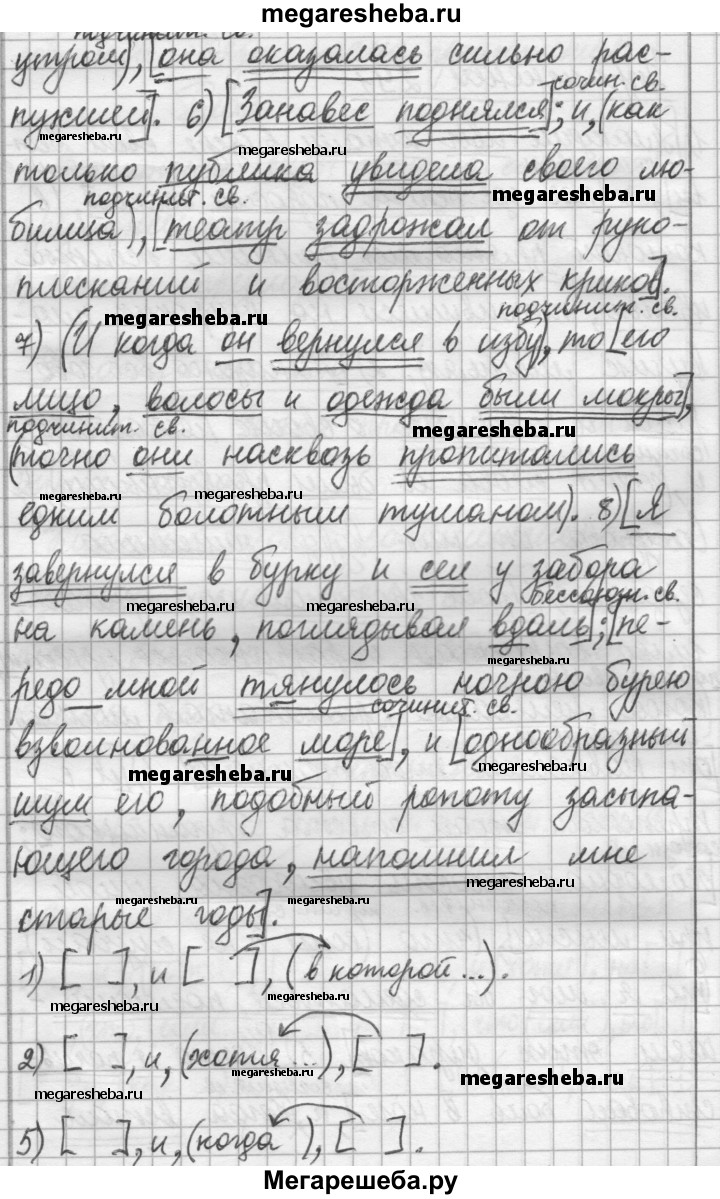 megaresheba.ru
подчинит. св.
утром), [она оказалась сильно рас-
сочин. св.
пухшей]. 6) [Занавес поднялся]; и, (как
megaresheba.ru megaresheba.ru
только публика увидела своего лю-
подчинит. св. megaresheba.ru
бимца), [театр задрожал от руко-
плесканий и восторженных криков].
megaresheba.ru подчинит. св.
7) (И когда он вернулся в избу), то [его
лицо, волосы и одежда были мокры],
подчинит. св. megaresheba.ru
(точно они насквозь пропитались
megaresheba.ru megaresheba.ru
едким болотным туманом). 8) [Я
завернулся в бурку и сел у забора
megaresheba.ru бессоюзн. св.
на камень, поглядывая вдаль]; [пе-
megaresheba.ru
редо мной тянулось ночною бурею
сочинит. св.
взволнованное море], и [однообразный
megaresheba.ru megaresheba.ru
шум его, подобный ропоту засыпа-
ющего города, напомнил мне
megaresheba.ru megaresheba.ru
старые годы].
1) [ ], и [ ], (в которой ...).
megaresheba.ru megaresheba.ru
2) [ ], и, (хотя ...), [ ].
megaresheba.ru megaresheba.ru
megaresheba.ru
5) [ ], и, (когда ), [ ].
Мегарешеба.ру